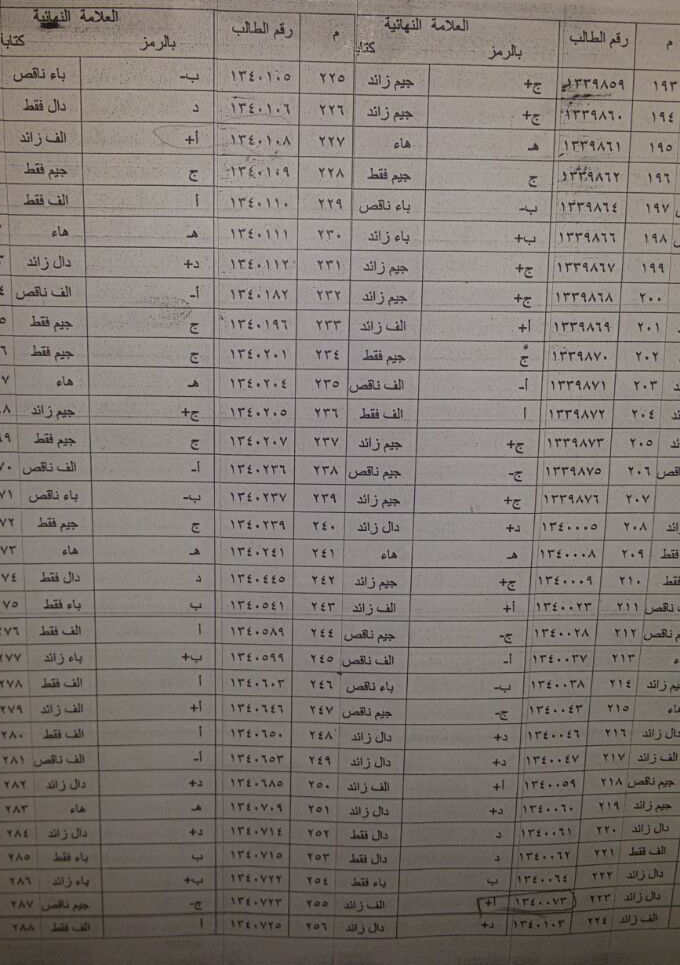 العلامة النهائية العلامة النهائية
م رقم الطالب بالرمز كتابة م رقم الطالب بالرمز كتابة
١٩٣ ١٣٣٩٨٥٩ ج+ جيم زائد ٢٢٥ ١٣٤٠١٠٥ ب- باء ناقص
١٩٤ ١٣٣٩٨٦٠ ج+ جيم زائد ٢٢٦ ١٣٤٠١٠٦ د دال فقط
١٩٥ ١٣٣٩٨٦١ هـ هاء ٢٢٧ ١٣٤٠١٠٨ أ+ الف زائد
١٩٦ ١٣٣٩٨٦٢ ج جيم فقط ٢٢٨ ١٣٤٠١٠٩ ج جيم فقط
١٩٧ ١٣٣٩٨٦٤ ب- باء ناقص ٢٢٩ ١٣٤٠١١٠ أ الف فقط
١٩٨ ١٣٣٩٨٦٦ ب+ باء زائد ٢٣٠ ١٣٤٠١١١ هـ هاء
١٩٩ ١٣٣٩٨٦٧ ج+ جيم زائد ٢٣١ ١٣٤٠١١٢ د+ دال زائد
٢٠٠ ١٣٣٩٨٦٨ ج+ جيم زائد ٢٣٢ ١٣٤٠١٨٢ أ- الف ناقص
٢٠١ ١٣٣٩٨٦٩ أ+ الف زائد ٢٣٣ ١٣٤٠١٩٦ ج جيم فقط
٢٠٢ ١٣٣٩٨٧٠ ج جيم فقط ٢٣٤ ١٣٤٠٢٠١ ج جيم فقط
٢٠٣ ١٣٣٩٨٧١ أ- الف ناقص ٢٣٥ ١٣٤٠٢٠٤ هـ هاء
٢٠٤ ١٣٣٩٨٧٢ أ الف فقط ٢٣٦ ١٣٤٠٢٠٥ ج+ جيم زائد
٢٠٥ ١٣٣٩٨٧٣ ج+ جيم زائد ٢٣٧ ١٣٤٠٢٠٧ ج جيم فقط
٢٠٦ ١٣٣٩٨٧٥ ج- جيم ناقص ٢٣٨ ١٣٤٠٢٣٦ أ- الف ناقص
٢٠٧ ١٣٣٩٨٧٦ ج+ جيم زائد ٢٣٩ ١٣٤٠٢٣٧ ب- باء ناقص
٢٠٨ ١٣٤٠٠٠٥ د+ دال زائد ٢٤٠ ١٣٤٠٢٣٩ ج جيم فقط
٢٠٩ ١٣٤٠٠٠٨ هـ هاء ٢٤١ ١٣٤٠٢٤١ هـ هاء
٢١٠ ١٣٤٠٠٠٩ ج+ جيم زائد ٢٤٢ ١٣٤٠٤٤٥ د دال فقط
٢١١ ١٣٤٠٠٢٣ أ+ الف زائد ٢٤٣ ١٣٤٠٥٤١ ب باء فقط
٢١٢ ١٣٤٠٠٢٨ ج- جيم ناقص ٢٤٤ ١٣٤٠٥٨٩ أ الف فقط ٢٧٦
٢١٣ ١٣٤٠٠٣٧ أ- الف ناقص ٢٤٥ ١٣٤٠٥٩٩ ب+ باء زائد ٢٧٧
٢١٤ ١٣٤٠٠٣٨ ب- باء ناقص ٢٤٦ ١٣٤٠٦٠٣ أ الف فقط ٢٧٨
٢١٥ ١٣٤٠٠٤٣ ج- جيم ناقص ٢٤٧ ١٣٤٠٦٤٦ أ+ الف زائد ٢٧٩
٢١٦ ١٣٤٠٠٤٦ د+ دال زائد ٢٤٨ ١٣٤٠٦٥٠ أ الف فقط ٢٨٠
٢١٧ ١٣٤٠٠٤٧ د+ دال زائد ٢٤٩ ١٣٤٠٦٥٣ أ- الف ناقص ٢٨١
٢١٨ ١٣٤٠٠٥٩ أ+ الف زائد ٢٥٠ ١٣٤٠٦٨٥ د+ دال زائد ٢٨٢
٢١٩ ١٣٤٠٠٦٠ د+ دال زائد ٢٥١ ١٣٤٠٧٠٩ هـ هاء ٢٨٣
٢٢٠ ١٣٤٠٠٦١ د دال فقط ٢٥٢ ١٣٤٠٧١٤ د+ دال زائد ٢٨٤
٢٢١ ١٣٤٠٠٦٢ د دال فقط ٢٥٣ ١٣٤٠٧١٥ ب باء فقط ٢٨٥
٢٢٢ ١٣٤٠٠٦٤ ب باء فقط ٢٥٤ ١٣٤٠٧٢٢ ب+ باء زائد ٢٨٦
٢٢٣ ١٣٤٠٠٧٣ أ+ الف زائد ٢٥٥ ١٣٤٠٧٢٣ ج- جيم ناقص ٢٨٧
٢٢٤ ١٣٤٠١٠٣ د+ دال زائد ٢٥٦ ١٣٤٠٧٢٥ أ الف فقط ٢٨٨